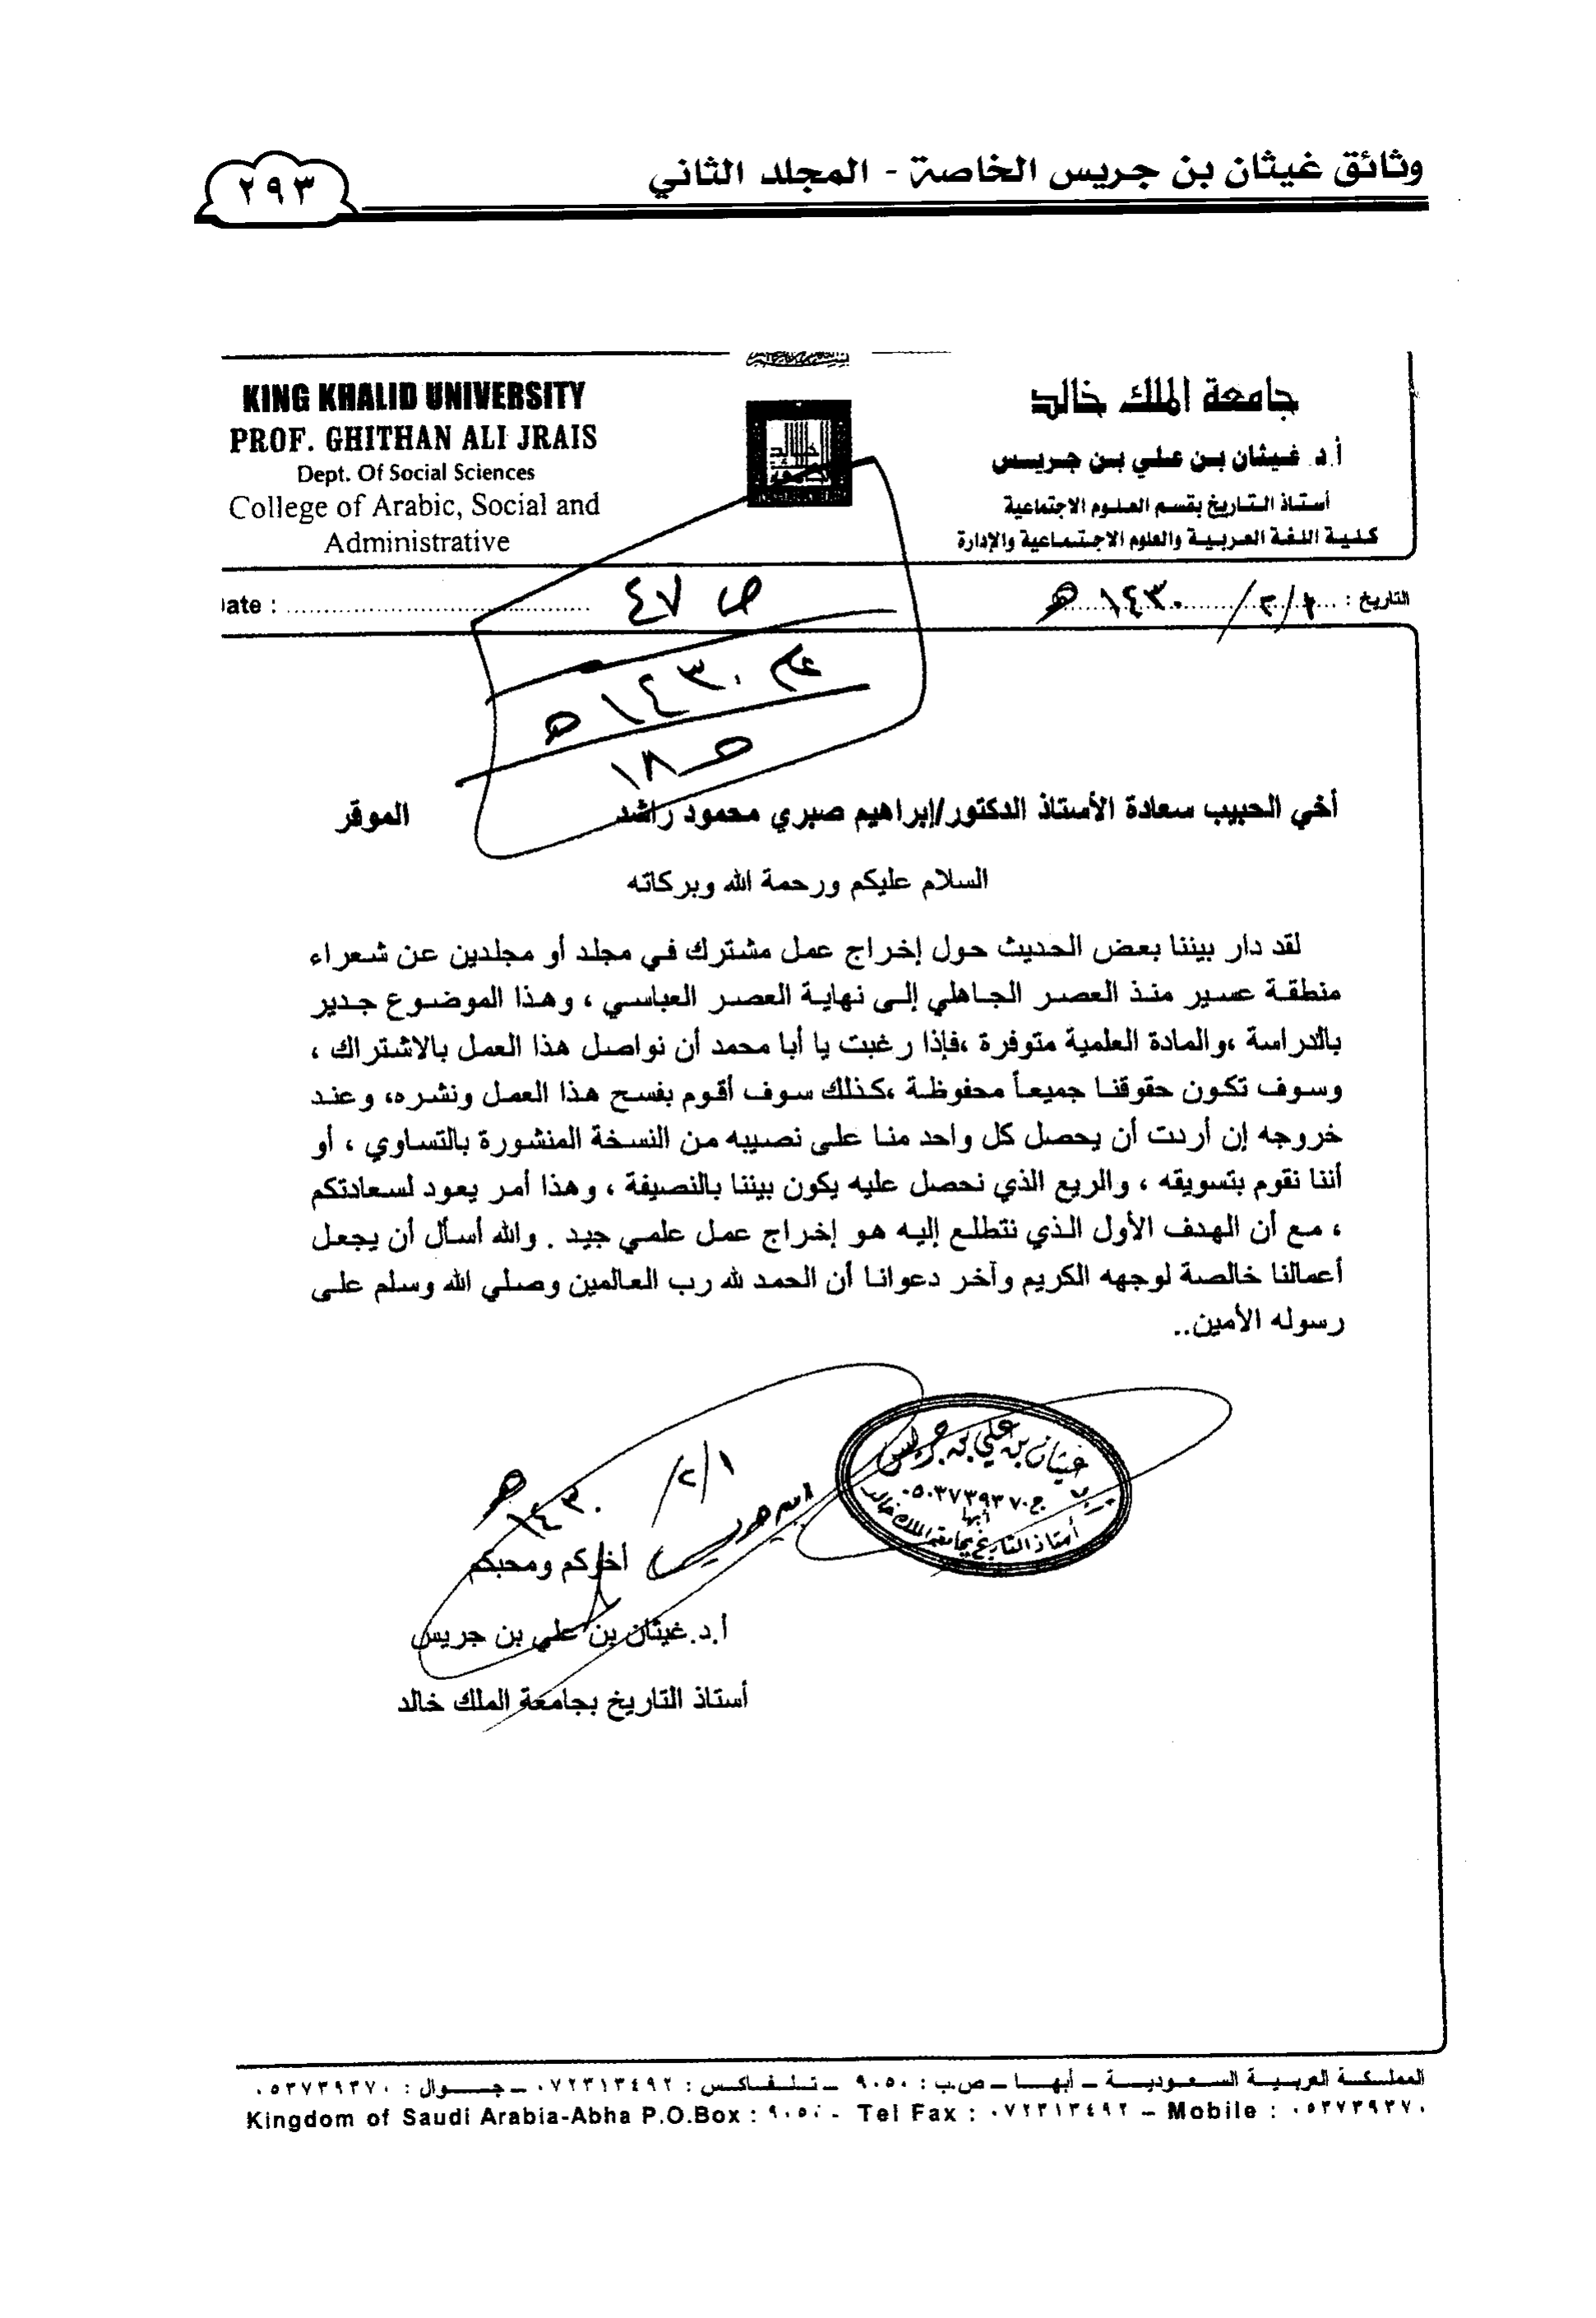 وثائق غيثان بن جريس الخاصة - المجلد الثاني
٢٩٣
KING KHALID UNIVERSITY
PROF. GHITHAN ALI JRAIS
Dept. Of Social Sciences
College of Arabic, Social and
Administrative
جامعة الملك خالد
أ.د. غيثان بن علي بن جريس
أستاذ التاريخ بقسم العلوم الاجتماعية
كلية اللغة العربية والعلوم الاجتماعية والإدارة
التاريخ : ١/٢/١٤٣٠هـ
ate :
ص ٤٧
عام ١٤٣٠هـ
صـ١٨
أخي الحبيب سعادة الأستاذ الدكتور/إبراهيم صبري محمود راشد الموقر
السلام عليكم ورحمة الله وبركاته
لقد دار بيننا بعض الحديث حول إخراج عمل مشترك في مجلد أو مجلدين عن شعراء
منطقة عسير منذ العصر الجاهلي إلى نهاية العصر العباسي ، وهذا الموضوع جدير
بالدراسة ،والمادة العلمية متوفرة ،فإذا رغبت يا أبا محمد أن نواصل هذا العمل بالاشتراك ،
وسوف تكون حقوقنا جميعاً محفوظة ،كذلك سوف أقوم بفسح هذا العمل ونشره، وعند
خروجه إن أردت أن يحصل كل واحد منا على نصيبه من النسخة المنشورة بالتساوي ، أو
أننا نقوم بتسويقه ، والريع الذي نحصل عليه يكون بيننا بالنصيفة ، وهذا أمر يعود لسعادتكم
، مع أن الهدف الأول الذي نتطلع إليه هو إخراج عمل علمي جيد . والله أسأل أن يجعل
أعمالنا خالصة لوجهه الكريم وآخر دعوانا أن الحمد لله رب العالمين وصلي الله وسلم على
رسوله الأمين..
غيثان بن علي بن جريس
ج ٠٥٠٣٧٣٩٣٧٠
أبها
أستاذ التاريخ بجامعة الملك خالد
ابن جريس
١/٢/١٤٣٠هـ
أخوكم ومحبكم
أ.د.غيثان بن علي بن جريس
أستاذ التاريخ بجامعة الملك خالد
المملكة العربية السعودية – أبها – ص.ب : ٩٠٥٠ – تلفاكس : ٠٧٢٣١٣٤٩٢ – جوال : ٠٥٣٧٣٩٣٧٠
Kingdom of Saudi Arabia-Abha P.O.Box : ٩٠٥٠ - Tel Fax : ٠٧٢٣١٣٤٩٢ – Mobile : ٠٥٣٧٣٩٣٧٠